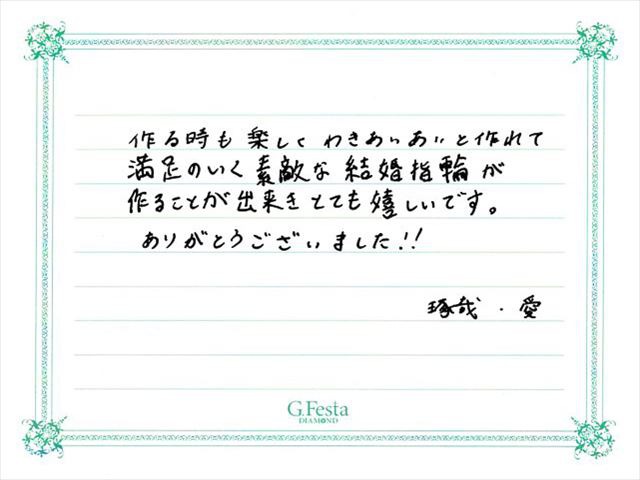 作る時も楽しくわきあいあいと作れて
満足のいく素敵な結婚指輪が
作ることが出来きとても嬉しいです。
ありがとうございました!!
琢哉・愛
G.Festa
DIAMOND